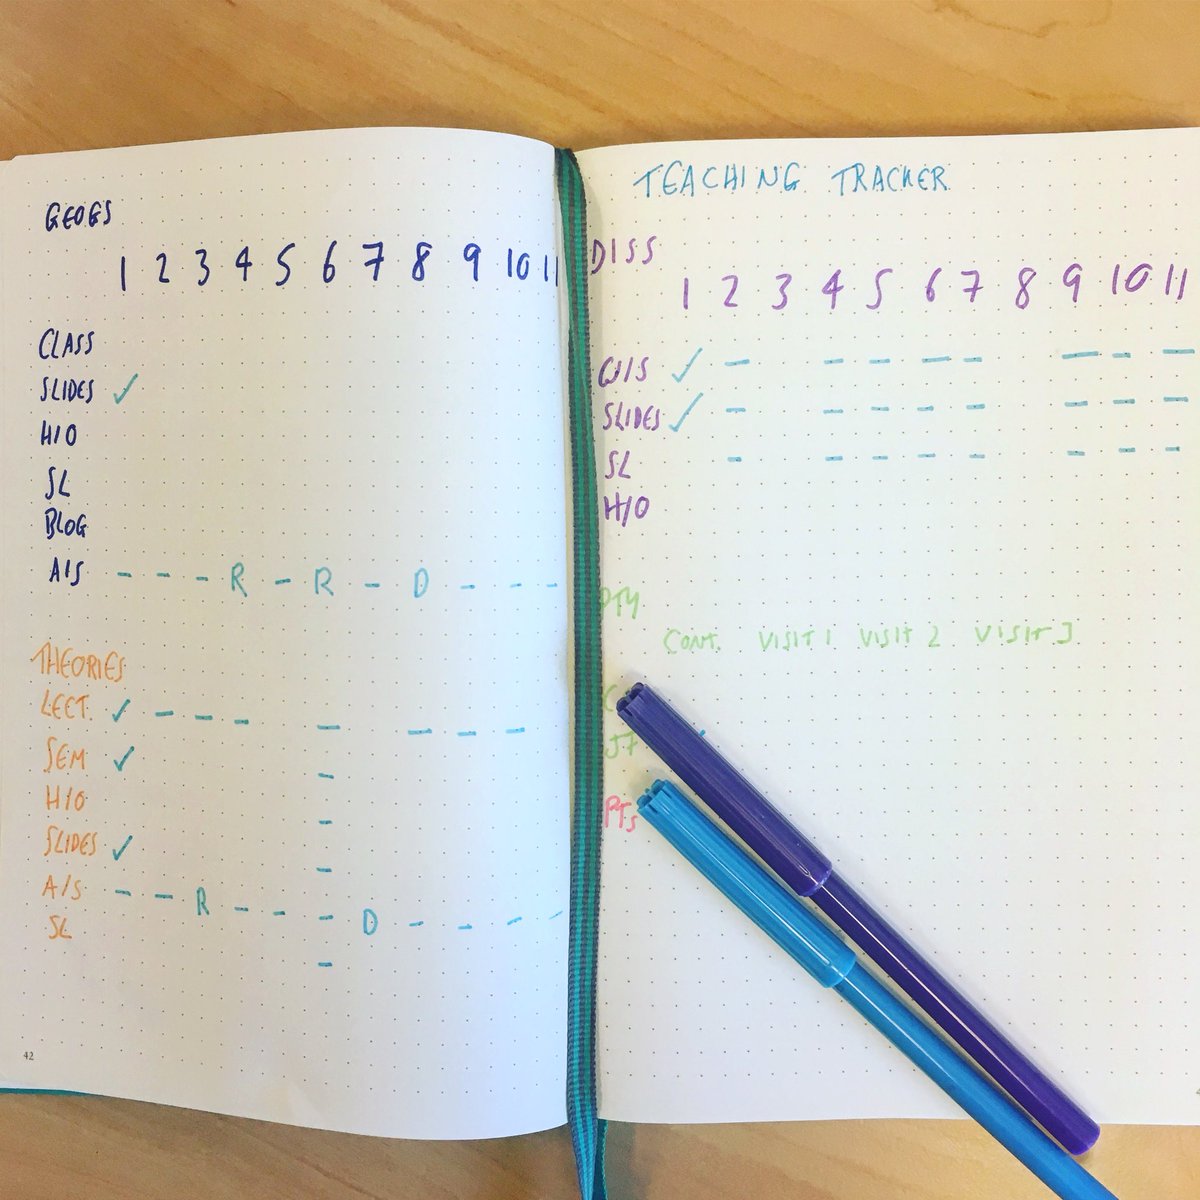 GEOGS
1 2 3 4 5 6 7 8 9 10 11
CLASS
SLIDES ✓
H/O
SL
BLOG
A/S - - - R - R - D - - -
THEORIES
LECT. ✓ - - - - - - -
SEM ✓ -
H/O -
SLIDES ✓ -
A/S - - R - - - D - - - -
SL -
42
TEACHING TRACKER
DISS
1 2 3 4 5 6 7 8 9 10 11
W/S ✓ - - - - - - - -
SLIDES ✓ - - - - - - - -
SL - - - - - - - -
H/O
PTY
CONT. VISIT 1 VISIT 2 VISIT 3
PTs